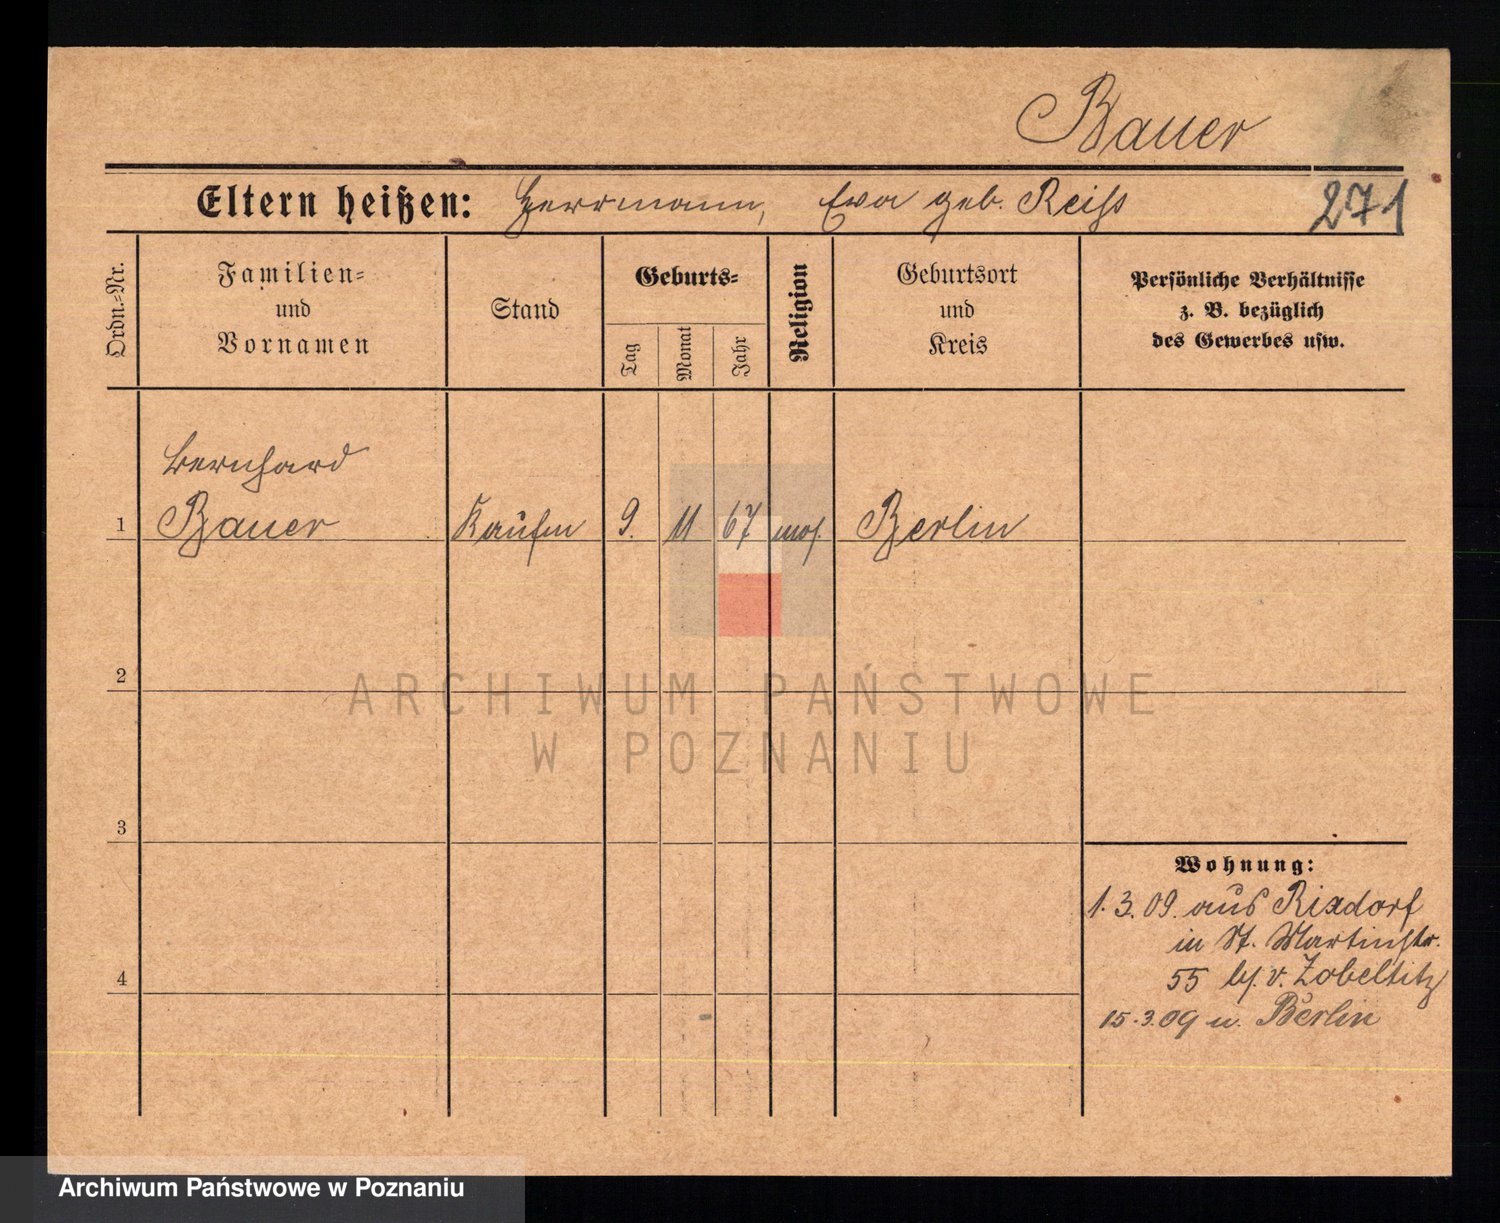 Bauer
Eltern heißen: Herrmann, Eva geb. Reiss
271
Ordn.=Nr.
Familien=
und
Vornamen
Stand
Geburts=
Tag
Monat
Jahr
Religion
Geburtsort
und
Kreis
Persönliche Verhältnisse
z. B. bezüglich
des Gewerbes usw.
Bernhard
1 Bauer Kaufm 9. 11 67 mos. Berlin
2
3
4
Wohnung:
1.3.09. aus Rixdorf
in St. Martinstr.
55 bei v. Zobeltitz
15.3.09 n. Berlin
ARCHIWUM PAŃSTWOWE
W POZNANIU
Archiwum Państwowe w Poznaniu